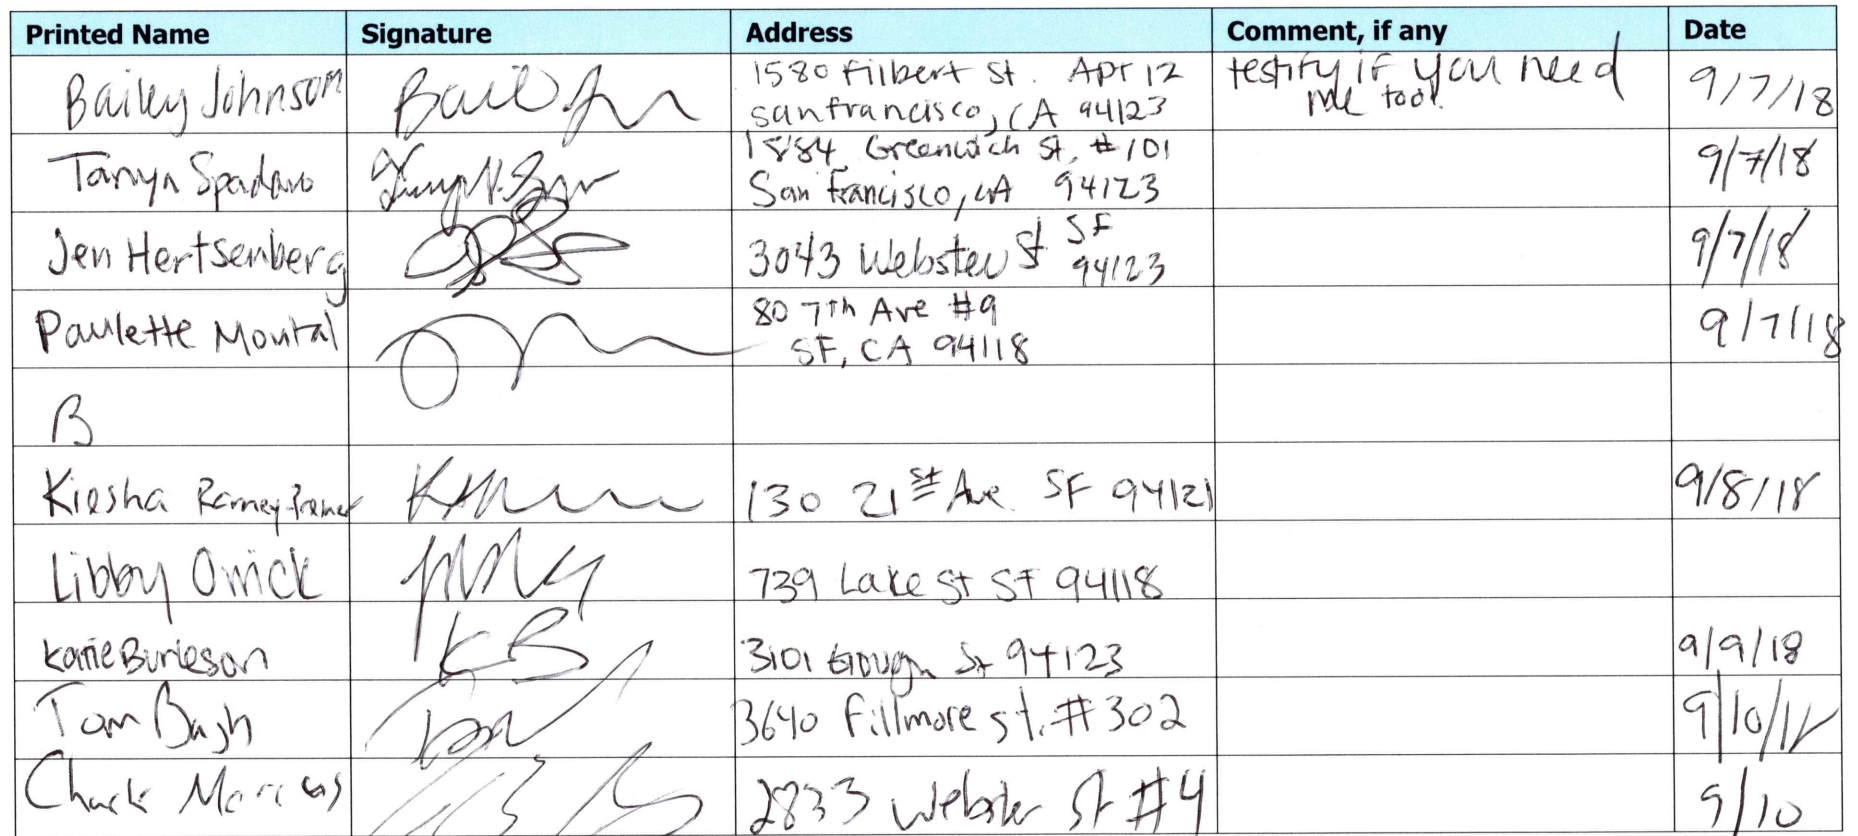 Printed Name Signature Address Comment, if any Date
Bailey Johnson 1580 Filbert St. Apt 12 testify if you need 9/7/18
san francisco, CA 94123 me too!
Tanya Spadaro 1884 Greenwich St. #101 9/7/18
San Francisco, CA 94123
Jen Hertsenberg 3043 Webster St SF 9/7/18
94123
Paulette Montal 80 7th Ave #9 9/7/18
SF, CA 94118
B
Kiesha 130 21st Ave. SF 94121 9/8/18
Libby Orrick 739 Lake St SF 94118
Katie Burleson KB 3101 Gough St 94123 9/9/18
Tom Tom 3640 Fillmore st. #302 9/10/18
Chuck Marcus 2833 Webster St #4 9/10